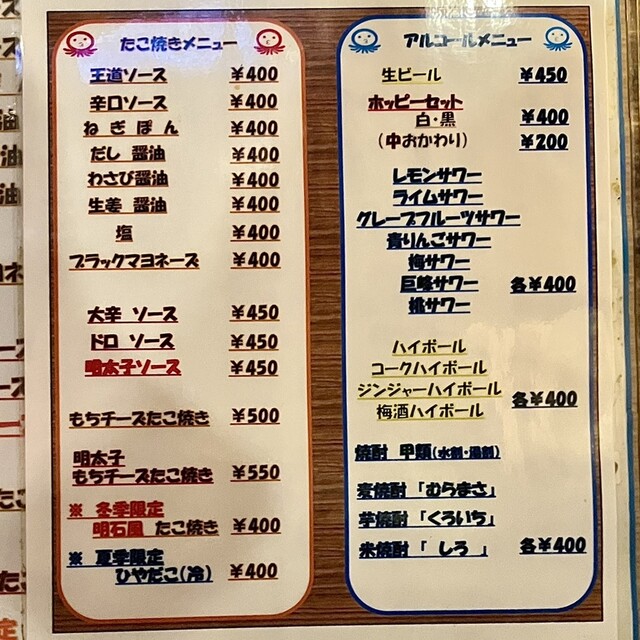 たこ焼きメニュー
王道ソース ¥400
辛口ソース ¥400
ねぎぽん ¥400
だし 醤油 ¥400
わさび醤油 ¥400
生姜 醤油 ¥400
塩 ¥400
ブラックマヨネーズ ¥400
大辛 ソース ¥450
ドロ ソース ¥450
明太子ソース ¥450
もちチーズたこ焼き ¥500
明太子
もちチーズたこ焼き ¥550
※ 冬季限定
明石風 たこ焼き ¥400
※ 夏季限定
ひやだこ(冷) ¥400
アルコールメニュー
生ビール ¥450
ホッピーセット
白・黒 ¥400
(中おかわり) ¥200
レモンサワー
ライムサワー
グレープフルーツサワー
青りんごサワー
梅サワー
巨峰サワー 各¥400
桃サワー
ハイボール
コークハイボール
ジンジャーハイボール
梅酒ハイボール 各¥400
焼酎 甲類(水割・湯割)
麦焼酎 「むらまさ」
芋焼酎 「くろいち」
米焼酎 「 しろ 」 各¥400